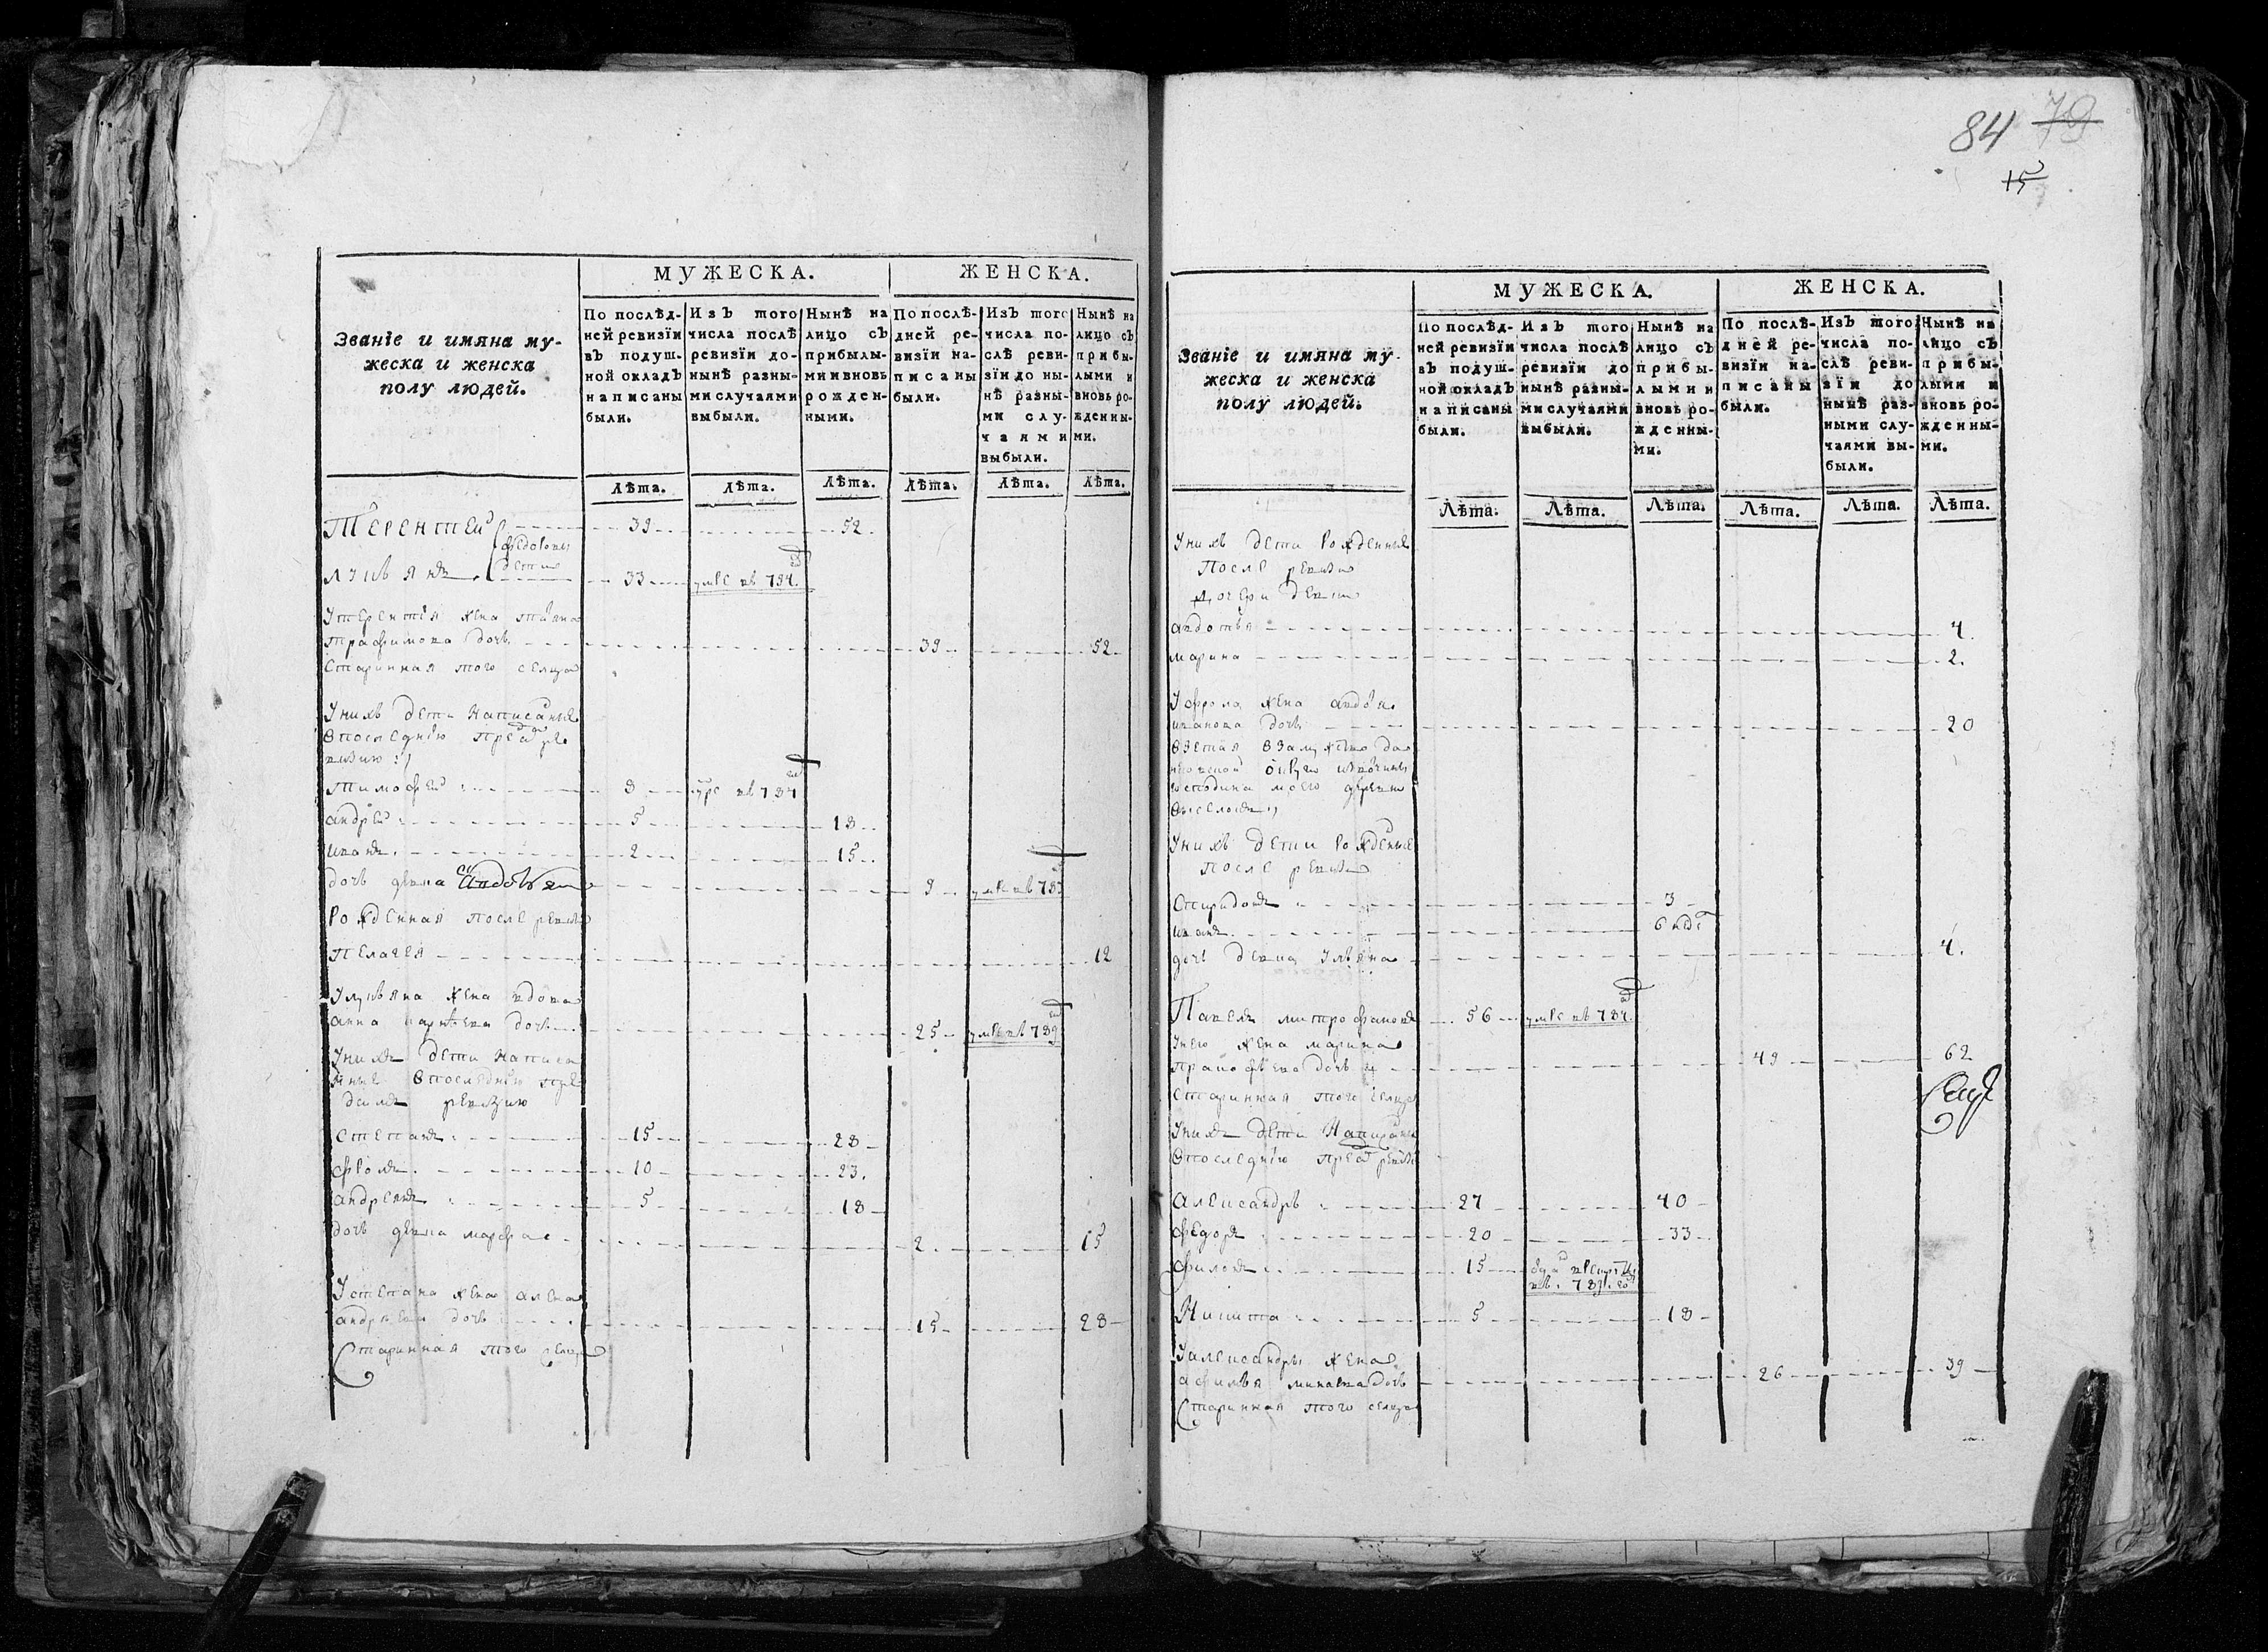 МУЖЕСКА. ЖЕНСКА.
Званіе и имяна му-
жеска и женска
полу людей.
По послѣд-
ней ревизїи
въ подуш-
ной окладъ
написаны
были.
Изъ того
числа послѣ
ревизїи до-
нынѣ разны-
ми случаями
выбыли.
Нынѣ на
лицо съ
прибылы-
ми и вновь
рожден-
ными.
По послѣ-
дней ре-
визїи на-
писаны
были.
Изъ того
числа по-
слѣ реви-
зїи до ны-
нѣ разны-
ми слу-
чаями
выбыли.
Нынѣ на
лицо съ
прибы-
лыми и
вновь ро-
жденны-
ми.
Лѣта. Лѣта. Лѣта. Лѣта. Лѣта. Лѣта.
Терентей 39 52
федоровы
дети
лукьянъ 33 умре въ 784
Утерентья жена
трафимова дочь 39 52
Старинная того селца
Унихъ дети написаные
впоследнюю пред ре
визию
тимофей 8 умре въ 784
андрей 5 18
иванъ 2 15
дочь девка 9 умре въ
Рожденная после ревизи
пелагея 12
Улукьяна жена вдова
анна дочь 25 умре въ 789
Унихъ дети написа
ные впоследнюю пре
ревизию
степанъ 15 28
фролъ 10 23
андреянъ 5 18
дочь девка марфа 2 15
Устепана жена алена
андреева дочь 15 28
Старинная того селца
84 79
15
МУЖЕСКА. ЖЕНСКА.
Званіе и имяна му-
жеска и женска
полу людей.
По послѣд-
ней ревизїи
въ подуш-
ной окладъ
написаны
были.
Изъ того
числа послѣ
ревизїи до
нынѣ разны-
ми случаями
выбыли.
Нынѣ на
лицо съ
прибы-
лыми и
вновь ро-
жденны-
ми.
По послѣ-
дней ре-
визїи на-
писаны
были.
Изъ того
числа по-
слѣ реви-
зїи до
нынѣ раз-
ными слу-
чаями вы-
были.
Нынѣ на
лицо съ
прибы-
лыми и
вновь ро-
жденны-
ми.
Лѣта. Лѣта. Лѣта. Лѣта. Лѣта. Лѣта.
Унихъ дети Рожденные
После ревизи
дочери девки
авдотья 4
марина 2
Уфрола жена
иванова дочь 20
взетая взамужство
господина моего деревни
Унихъ дети Рожденые
после ревизи
Спиридонъ 3
иванъ 6 нед
дочь девка Ульяна 4
Павелъ митрофановъ 56 умре въ 784
Унего жена марина
дочь 49 62
Старинная того селца
Унихъ дети Написаны
впоследнюю пред ревизи
Александръ 27 40
Федоръ 20 33
филонъ 15
Никита 5 18
Уалександры жена
афимья дочь 26 39
Старинная того селца